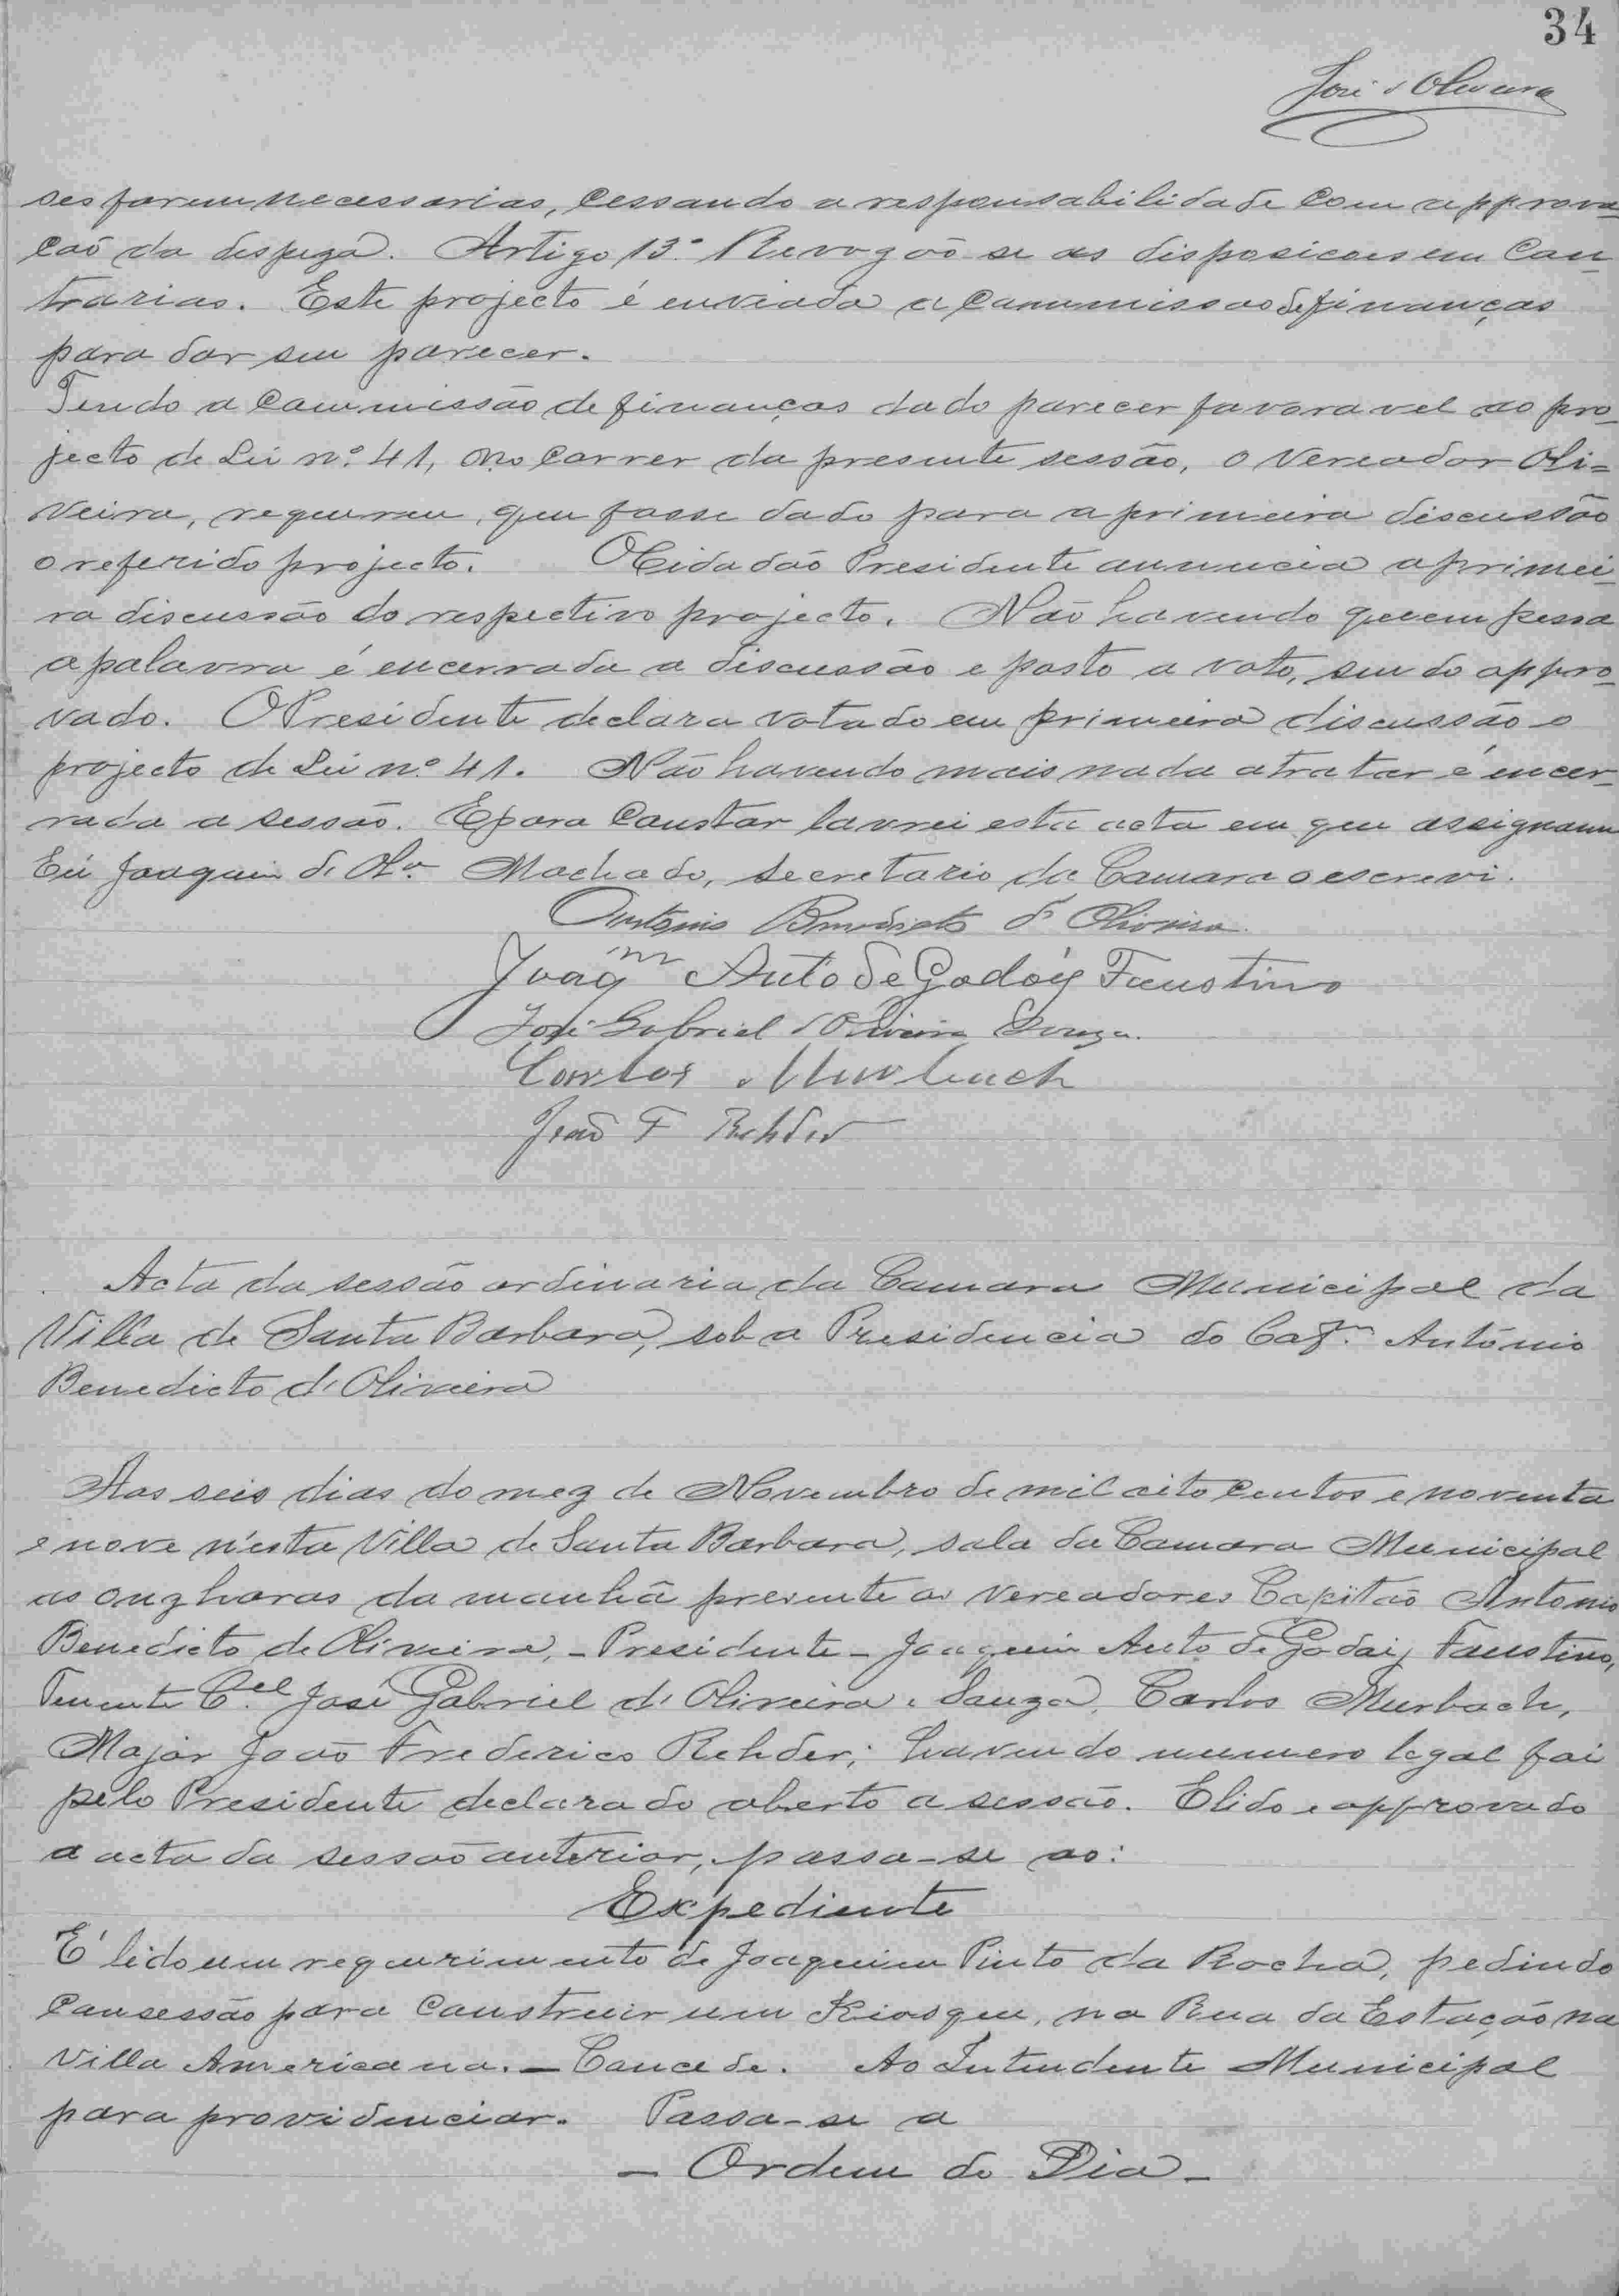 34
José d'Oliveira
ses forem necessarias, cessando a responsabilidade com approva-
cão da despeza. Artigo 13.º Revogão se as disposicoes em Con-
trarias. Este projecto é enviada a Commissao de finanças
para dar seu parecer.
Tendo a Commissão de finanças dado parecer favoravel ao pro-
jecto de Lei n.º 41, no correr da presente sessão, o Vereador Oli=
veira, requereu, que fosse dado para a primeira discussão
o referido projecto. O Cidadão Presidente annuncia a primei-
ra discussão do respectivo projecto. Não havendo quem pessa
a palavra é encerrada a discussão e posto a voto, sendo appro-
vado. O Presidente declara votado em primeira discussão o
projecto de Lei n.º 41. Não havendo mais nada a tratar é encer-
rada a sessão. E para Constar lavrei esta acta em que assignam
Eu Joaquim de Olª Machado, secretario da Camara o escrevi.
Antonio Benedicto d' Oliveira
Joaqm Antº de Godóy Faustino
José Gabriel d'Oliveira Souza
Carlos Murbach
João F Rehder
Acta da sessão ordinaria da Camara Municipal da
Villa de Santa Barbara, sob a Presidencia do Capm. António
Benedicto d' Oliveira
Aos seis dias do mez de Novembro de mil oito centos e noventa
e nove n'esta Villa de Santa Barbara, sala da Camara Municipal
as onz horas da manhã presente os Vereadores Capitão Antonio
Benedicto de Oliveira, - Presidente - Joaquim Antº de Godoiy Faustino,
Tenente C.el José Gabriel d' Oliveira e Souza, Carlos Murbach,
Major João Frederico Rehder; havendo numero legal foi
pelo Presidente declarado aberto a sessão. E lido e approvado
a acta da sessão anterior, passa-se ao:
Expediente
É lido um requerimento de Joaquim Pinto da Rocha, pedindo
Consessão para Construir um Kiosque, na Rua da Estação na
Villa Americana. - Concede. Ao Intendente Municipal
para providenciar. Passa-se a
- Ordem do Dia -